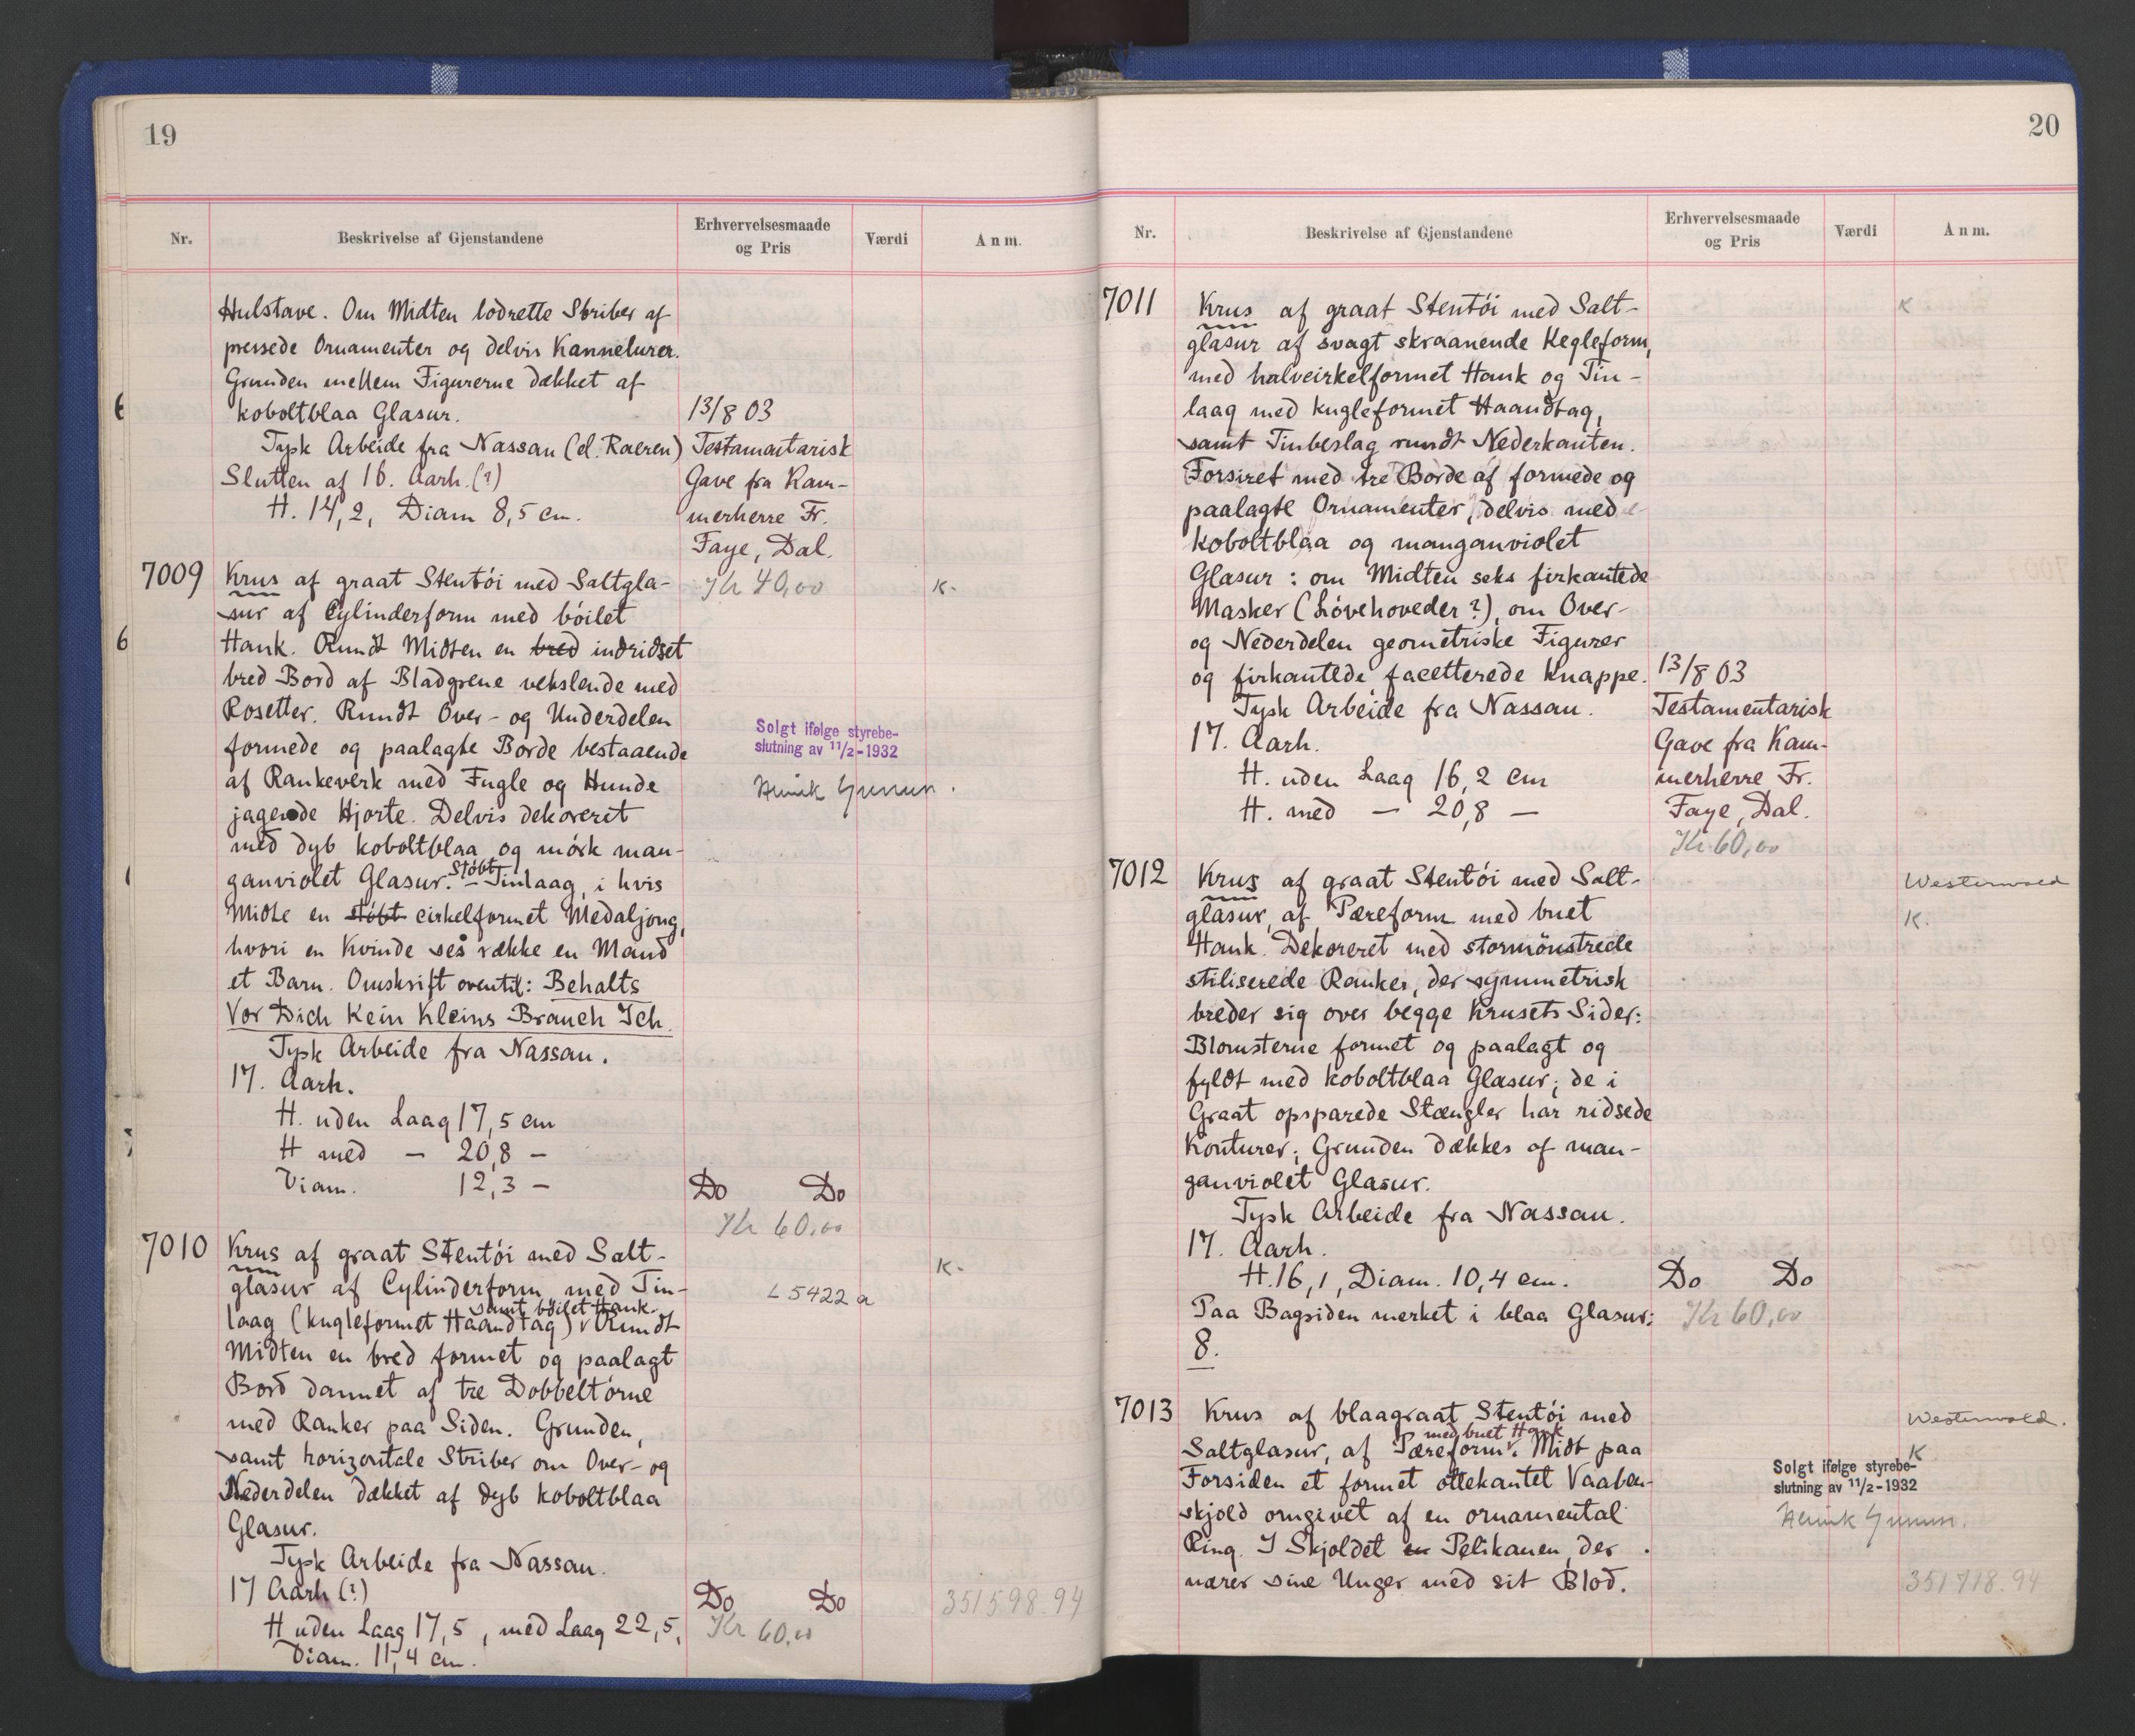 19
Nr.
Beskrivelse af Gjenstandene
Erhvervelsesmaade
og Pris
Værdi
Anm.
Hulstave. Om Midten lodrette Striber af
pressede Ornamenter og delvis Kannelurer.
Grunden mellem Figurerne dækket af
koboltblaa Glasur.
Tysk Arbeide fra Nassau (el. Raeren)
Slutten af 16. Aarh. (?)
H. 14,2, Diam 8,5 cm.
13/8 03
Testamentarisk
Gave fra Kam-
merherre Fr.
Faye, Dal.
Kr 40,00
7009
Krus af graat Stentöi med Saltgla-
sur af Cylinderform med böilet
Hank. Rundt Midten en bred indridset
bred Bord af Bladgrene vekslende med
Rosetter. Rundt Over- og Underdelen
formede og paalagte Borde bestaaende
af Rankeverk med Fugle og Hunde
jagende Hjorte. Delvis dekoreret
med dyb koboltblaa og mörk man-
ganviolet Glasur. Støbt Tinlaag, i hvis
Midte en støbt cirkelformet Medaljong,
hvori en Kvinde ses række en Mand
et Barn. Omskrift oventil: Behalts
Vor Dich Kein Kleins Brauch Ich.
Tysk Arbeide fra Nassau.
17. Aarh.
H. uden Laag 17,5 cm
H med – 20,8 –
Diam. 12,3 –
K.
Solgt ifølge styrebe-
slutning av 11/2-1932
Do Do
Kr 60,00
7010
Krus af graat Stentöi med Salt-
glasur af Cylinderform med Tin-
samt böilet Hank.
laag (kugleformet Haandtag) v Rundt
Midten en bred formet og paalagt
Bord dannet af tre Dobbeltörne
med Ranker paa Siden. Grunden,
samt horizontale Striber om Over- og
Nederdelen dækket af dyb koboltblaa
Glasur.
Tysk Arbeide fra Nassau.
17 Aarh (?)
H uden Laag 17,5, med Laag 22,5,
Diam. 11,4 cm.
K.
L 5422 a
Do Do
Kr 60,00
351598.94
20
Nr.
Beskrivelse af Gjenstandene
Erhvervelsesmaade
og Pris
Værdi
Anm.
7011
Krus af graat Stentöi med Salt-
glasur af svagt skraanende Kegleform,
med halvcirkelformet Hank og Tin-
laag med kugleformet Haandtag,
samt Tinbeslag rundt Nederkanten.
Forsiret med tre Borde af formede og
paalagte Ornamenter, delvis med
koboltblaa og manganviolet
Glasur: om Midten seks firkantede
Masker (Lövehoveder?), om Over-
og Nederdelen geometriske Figurer
og firkantede facetterede Knappe.
Tysk Arbeide fra Nassau.
17. Aarh.
H. uden Laag 16,2 cm
H. med – 20,8 –
K
13/8 03
Testamentarisk
Gave fra Kam-
merherre Fr.
Faye, Dal.
Kr. 60,00
7012
Krus af graat Stentöi med Salt-
glasur, af Pæreform med buet
Hank. Dekoreret med stormönstrede
stiliserede Ranker, der symmetrisk
breder sig over begge Krusets Sider:
Blomsterne formet og paalagt og
fyldt med koboltblaa Glasur; de i
Graat opsparede Stængler har ridsede
Konturer; Grunden dækkes af man-
ganviolet Glasur.
Tysk Arbeide fra Nassau.
17. Aarh.
H. 16,1, Diam. 10,4 cm.
Paa Bagsiden merket i blaa Glasur:
8.
Westerwald
K.
Do Do
Kr 60,00
7013
Krus af blaagraat Stentöi med
med buet Hank
Saltglasur, af Pæreform v. Midt paa
Forsiden et formet ottekantet Vaaben-
skjold omgivet af en ornamental
Ring. I Skjoldet en Pelikanen, der
nærer sine Unger med sit Blod.
Westerwald.
K
Solgt ifølge styrebe-
slutning av 11/2-1932
351718.94